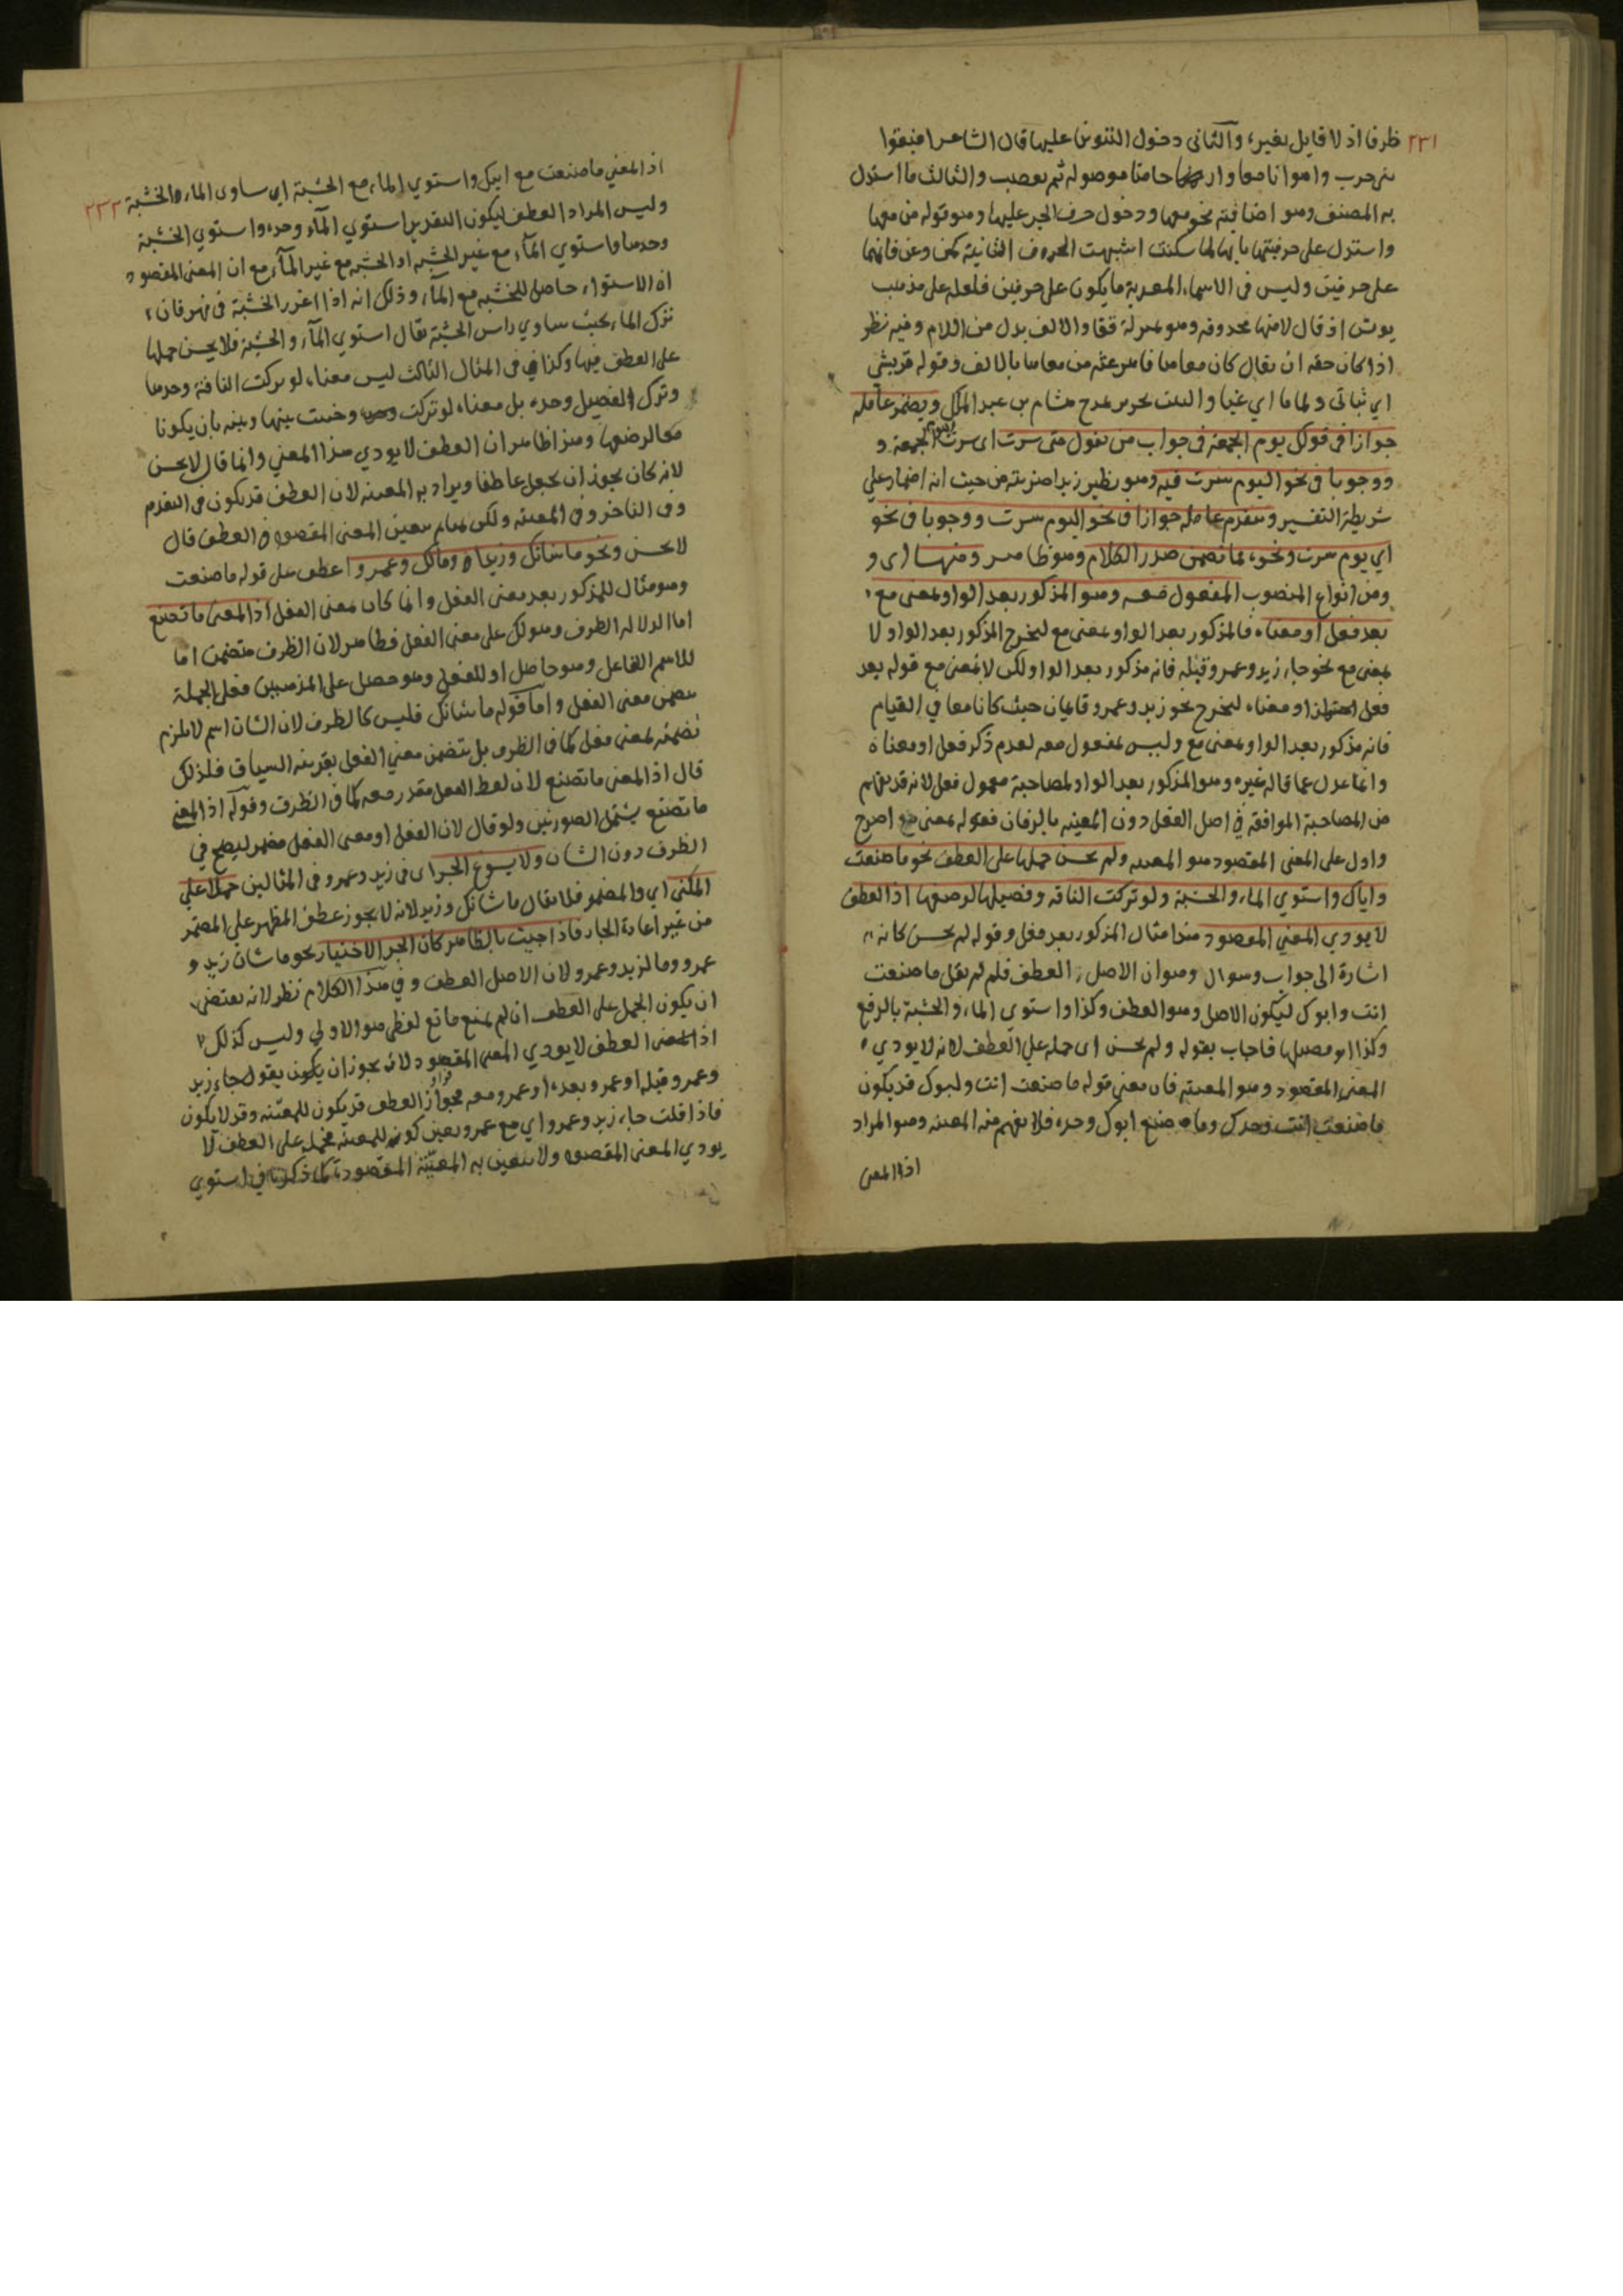 ٢٣١
ظرفا اذ لا قايل بغيره والثاني دخول التنوين عليها قال الشاعر افيقوا
بني حرب واهوانا معا وارحامنا موصولة لم تقضب والثالث ما استدل
به المصنف وهو اضافته نحو معها ودخول حرف الجر عليها وهو قوله من معها
واستدل على حرفيتها بانها لما سكنت اشبهت الحروف الثنائية كمن وعن فانهما
على حرفين وليس في الاسماء المعربة ما يكون على حرفين فلعله على مذهب
يونس اذ قال لانها محذوفة وهو بمنزلة قفا والالف بدل من اللام وفيه نظر
اذا كان حقه ان يقال كان معاها من معاها بالالف وقوله فريشي
اي ثيابي ولماما اي غبا والبيت لجرير يمدح هشام بن عبد الملك ويضمر عامله
جوازا في قولك يوم الجمعة في جواب من يقول متى سرت اي سرت يوم الجمعة و
ووجوبا في نحو اليوم سرت فيه وهو نظير زيدا ضربته من حيث انه اضمار على
شريطة التفسير ويتقدم عامله جوازا في نحو اليوم سرت ووجوبا في نحو
اي يوم سرت ونحوه مما تضمن صدر الكلام وهو ظاهر ومنها اي و
ومن انواع المنصوب المفعول معه وهو المذكور بعد الواو بمعنى مع
بعد فعل او معناه فالمذكور بعد الواو بمعنى مع ليخرج المذكور بعد الواو لا
بمعنى مع نحو جاء زيد وعمرو قبله فانه مذكور بعد الواو لكن لا بمعنى مع قوله بعد
فعل او معناه ليخرج نحو زيد وعمرو قايمان حيث كانا معا في القيام
فانه مذكور بعد الواو بمعنى مع وليس بمفعول معه لعدم ذكر فعل او معناه
وانما عدل عما قاله غيره وهو المذكور بعد الواو لمصاحبة معمول فعل لانه قد يفهم
من المصاحبة الموافقة في اصل الفعل دون المعية بالزمان فقوله بمعنى مع اصرح
وادل على المعنى المقصود هو المعية ولم يحسن حملها على العطف نحو ما صنعت
واياك واستوي الماء والخشبة ولو تركت الناقة وفصيلها لرضعها اذ العطف
لا يودي المعني المقصود هذا مثال المذكور بعد فعل وقوله لم يحسن كانه
اشارة الى جواب وسوال وهو ان الاصل العطف فلم لم يقل ما صنعت
انت وابوك ليكون الاصل وهو العطف وكذا واستوي الماء والخشبة بالرفع
وكذا او فصيلها فاجاب بقوله ولم يحسن اى حمله علي العطف لانه لا يودي
المعنى المقصود وهو المعية فان معنى قوله ما صنعت انت وابوك قد يكون
ما صنعت انت وحدك وما صنع ابوك وحده فلا يفهم منه المعية وهو المراد
اذ المعنى
٢٣٢
اذ المعني ما صنعت مع ابيك واستوي الماء مع الخشبة اي ساوى الماء والخشبة
وليس المراد العطف ليكون التقدير استوي الماء وحده واستوي الخشبة
وحدها واستوي الماء مع غير الخشبة او الخشبة مع غير الماء مع ان المعنى المقصود
ان الاستواء حاصل للخشبة مع الماء وذلك انه اذا اغرز الخشبة في نهر فان
نزل الماء بحيث ساوي راس الخشبة يقال استوي الماء والخشبة فلا يحسن حملها
على العطف فيها وكذا في المثال الثالث ليس معناه لو تركت الناقة وحدها
وترك الفصيل وحده بل معناه لو تركت وخليت بينها وبينه بان يكونا
معا لرضعها وهذا ظاهر ان العطف لا يودي هذا المعني وانما قال لا يحسن
لانه كان يجوز ان يجعل عاطفا ويراد به المعية لان العطف قد يكون في التقدم
وفي التاخر وفي المعية ولكن لما لم يتعين المعنى المقصود في العطف قال
لا يحسن ونحو ما شانك وزيدا ومالك وعمروا عطف على قوله ما صنعت
وهو مثال للمذكور بعد معنى الفعل وانما كان بمعنى الفعل اذ المعنى ما تصنع
اما الدلالة الظرف وهو لك على معنى الفعل فظاهر لان الظرف متضمن اما
للاسم الفاعل وهو حاصل او للفعل وهو حصل على المذهبين فعلى الجملة
يتضمن معنى الفعل واما قوله ما شانك فليس كالظرف لان الشان اسم لا يلزم
تضمنه بمعنى فعل كما في الظرف بل يتضمن معني الفعل بقرينة السياق فلذلك
قال اذ المعنى ما تصنع لان لفظ الفعل مقدر معه كما في الظرف وقوله اذ المعني
ما تصنع يشتمل الصورتين ولو قال لان الفعل او معنى الفعل مضمر ليصح في
الظرف دون الشان ولا يسوغ الجر اى في زيد وعمرو في المثالين حملا علي
المكنى اي والمضمر فلا يقال ما شانك وزيد لانه لا يجوز عطف المظهر على المضمر
من غير اعادة الجار فاذا جيت بالظاهر كان الجر الاختيار نحو ما شان زيد و
عمرو وما لزيد وعمرو لان الاصل العطف وفي هذا الكلام نظر لانه يقتضى
ان يكون الحمل على العطف ان لم يمنع مانع لفظي هو الاولي وليس كذلك
اذ العطف لا يودي المعنى المقصود لانه يجوز ان يكون يقول جاء زيد
وعمرو قبله او عمرو بعده او عمرو معه فجواز العطف قد يكون للمعية وقد لا يكون
فاذا قلت جاء زيد وعمروا اي مع عمرو يعين كونه للمعية فحمله على العطف لا
يودي المعنى المقصود ولا يتعين به المعية المقصودة كما ذكرنا في استوي